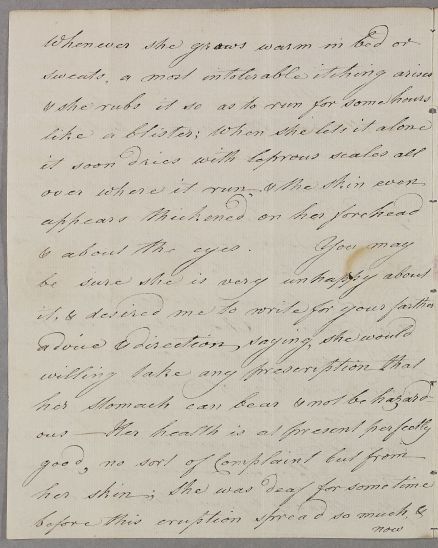 Whenever she grows warm in bed or
sweats, a most intolerable itching arises
& she rubs it so as to run for some hours
like a blister; when she lets it alone
it soon dries with leprous scales all
over where it run, & the skin even
appears thickened on her forehead
& about the eyes. You may
be sure she is very unhappy about
it, & desired me to write for your farther
advice & direction, saying, she would
willing take any prescription that
her stomach can bear & not be hazard-
ous — Her health is at present perfectly
good, no sort of Complaint but from
her skin; she was deaf for some time
before this eruption spread so much &
now